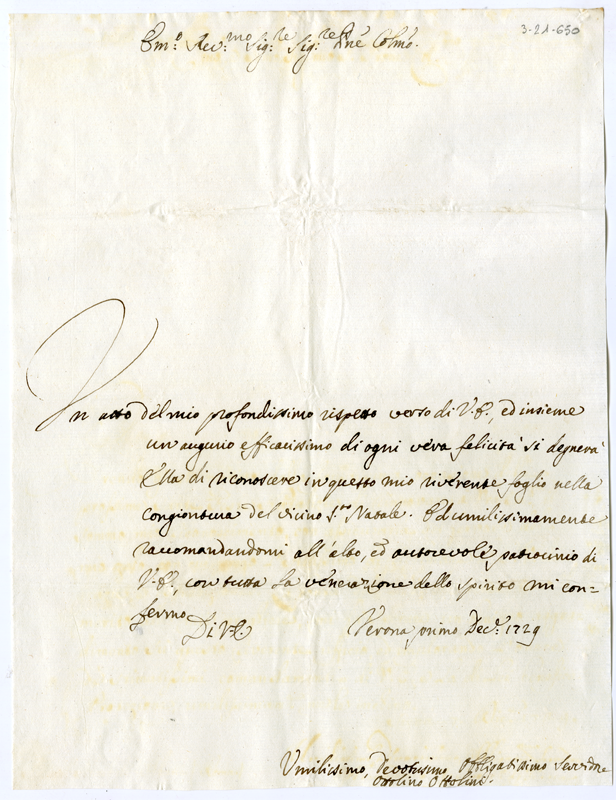 3-21-650
Em:o Rev:mo Sig:re Sig:re Pñe Colmo.
Un atto del mio profondissimo rispetto verso di V. E., ed insieme
un augurio efficacissimo di ogni vera felicità si degnerà
Ella di riconoscere in questo mio riverente foglio nella
congiontura del vicino S.mo Natale. Ed umilissimamente
raccomandandomi all'alto, ed autorevole patrocinio di
V. E., con tutta la venerazione dello spirito mi con=
fermo
Di V. E.
Verona primo Dec.e 1729
Umilissimo, Devotissimo, Obligatissimo Servidore
Ottolino Ottolini.